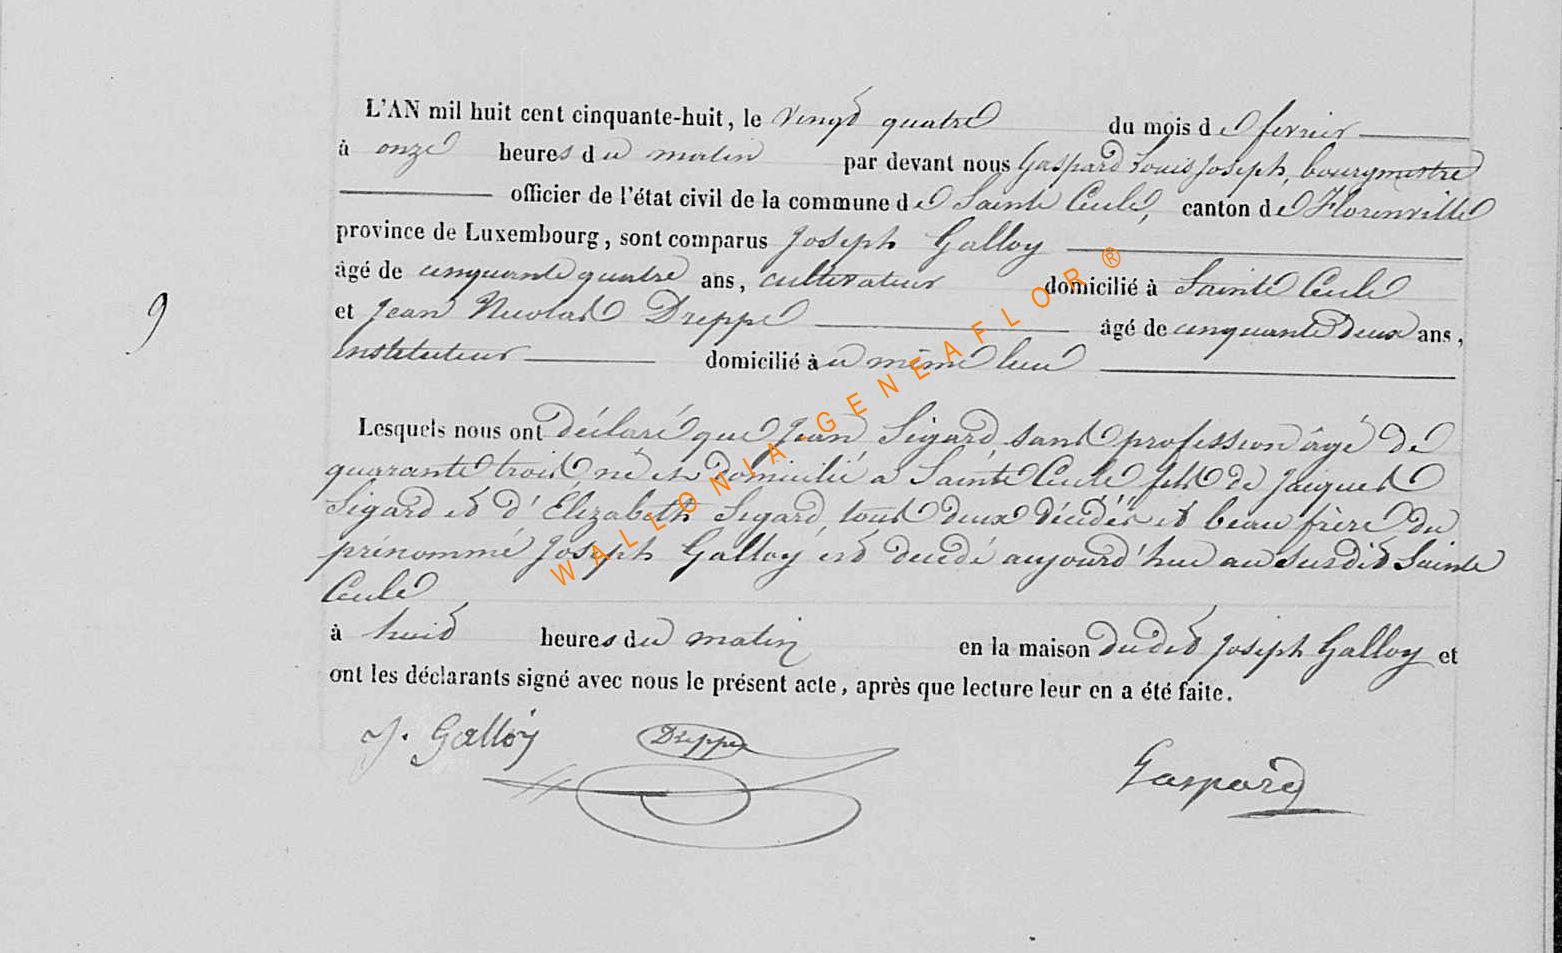 L'AN mil huit cent cinquante-huit, le vingt quatre du mois de fevrier
à onze heures du matin par devant nous Gaspard Louis Joseph, bourgmestre
officier de l'état civil de la commune de Sainte Cecile, canton de Florenville
province de Luxembourg, sont comparus Joseph Galloy
âgé de cinquante quatre ans, cultivateur domicilié à Sainte Cecile
et Jean Nicolas Dreppe âgé de cinquante deux ans,
9
instituteur domicilié au même lieu
Lesquels nous ont déclaré que Jean Sigard, sans profession âgé de
quarante trois, né et domicilié a Sainte Cecile fils de Jacques
Sigard et d'Élizabeth Sigard, tous deux décédés et beau frère du
prénommé Joseph Galloy est decedé aujourd'hui au susdit Sainte
Cecile
à huit heures du matin en la maison du dit Joseph Galloy et
ont les déclarants signé avec nous le présent acte, après que lecture leur en a été faite.
J. Galloy Dreppe Gaspard
WALLONIA-GENEAFLOR®